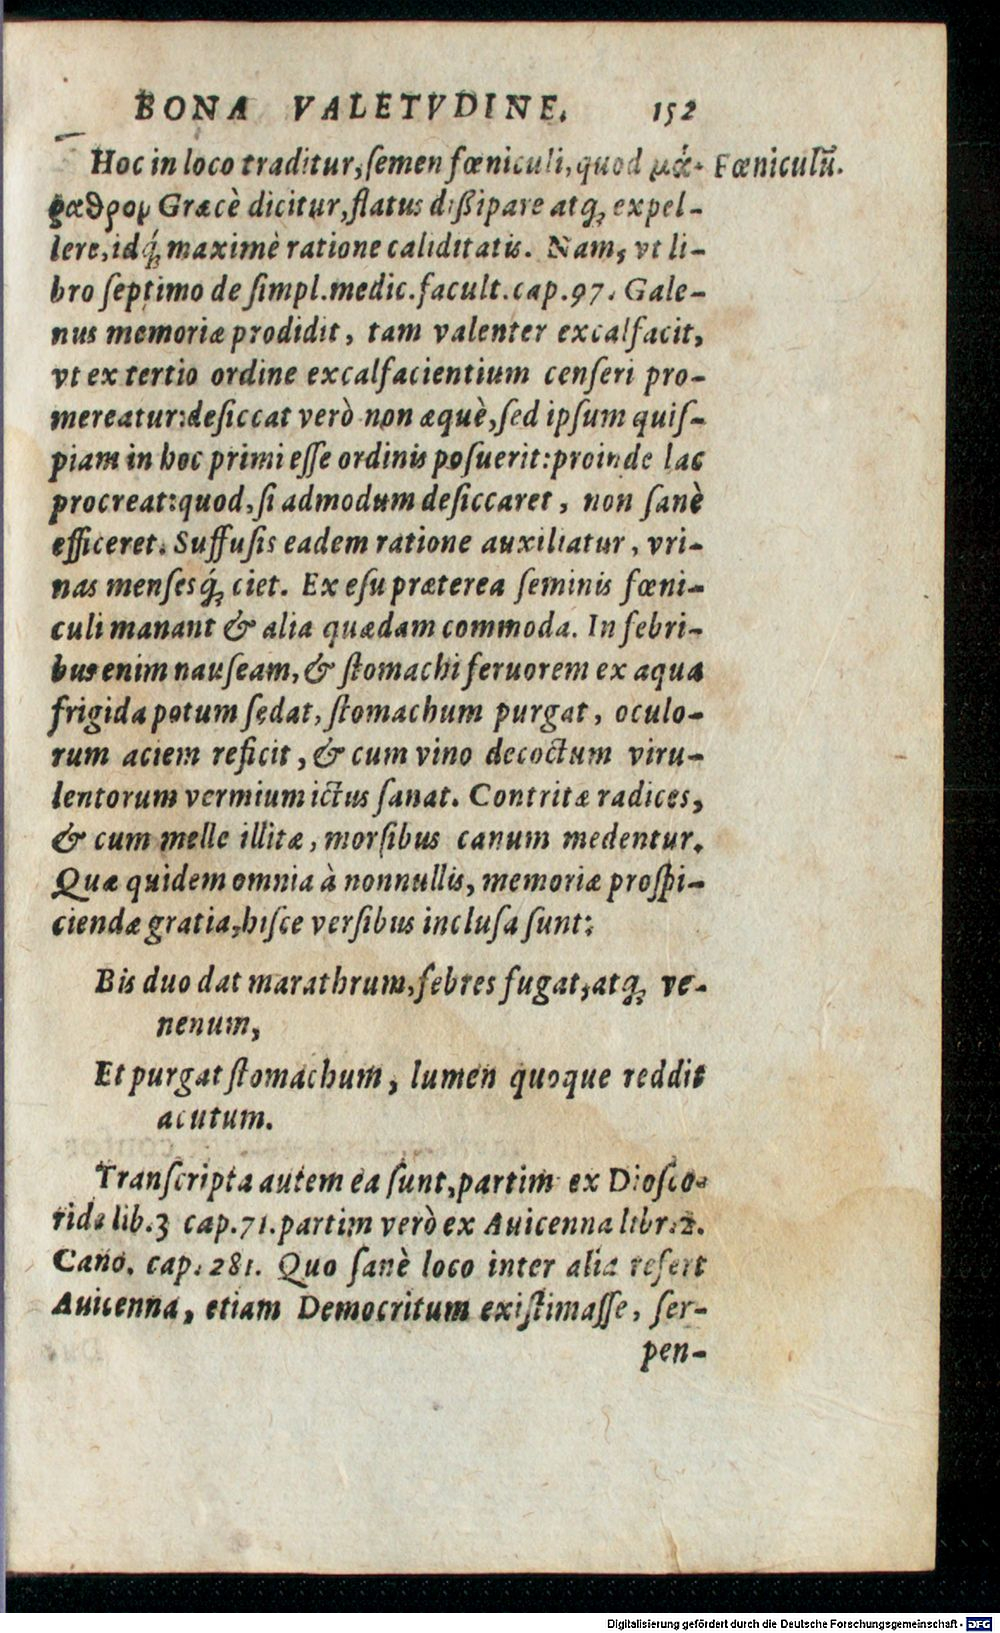 BONA VALETVDINE. 152
Hoc in loco traditur, ſemen fœniculi, quod μά- Fœniculũ.
ραθρον Græcè dicitur, flatus diſsipare atq; expel-
lere, idq́; maximè ratione caliditatis. Nam, vt li-
bro ſeptimo de ſimpl. medic. facult. cap. 97. Gale-
nus memoriæ prodidit, tam valenter excalfacit,
vt ex tertio ordine excalfacientium cenſeri pro-
mereatur: deſiccat verò non æquè, ſed ipſum quiſ-
piam in hoc primi eſſe ordinis poſuerit: proinde lac
procreat: quod, ſi admodum deſiccaret, non ſanè
efficeret. Suffuſis eadem ratione auxiliatur, vri-
nas menſesq́; ciet. Ex eſu præterea ſeminis fœni-
culi manant & alia quædam commoda. In febri-
bus enim nauſeam, & ſtomachi feruorem ex aqua
frigida potum ſedat, ſtomachum purgat, oculo-
rum aciem reficit, & cum vino decoctum viru-
lentorum vermium ictus ſanat. Contritæ radices,
& cum melle illitæ, morſibus canum medentur.
Quæ quidem omnia à nonnullis, memoriæ proſpi-
ciendæ gratia, hiſce verſibus incluſa ſunt:
Bis duo dat marathrum, febres fugat, atq; ve-
nenum,
Et purgat ſtomachum, lumen quoque reddit
acutum.
Tranſcripta autem ea ſunt, partim ex Dioſco-
ride lib. 3 cap. 71. partim verò ex Auicenna libr. 2.
Cano. cap. 281. Quo ſanè loco inter alia refert
Auicenna, etiam Democritum exiſtimaſſe, ſer-
pen-
Digitalisierung gefördert durch die Deutsche Forschungsgemeinschaft - DFG